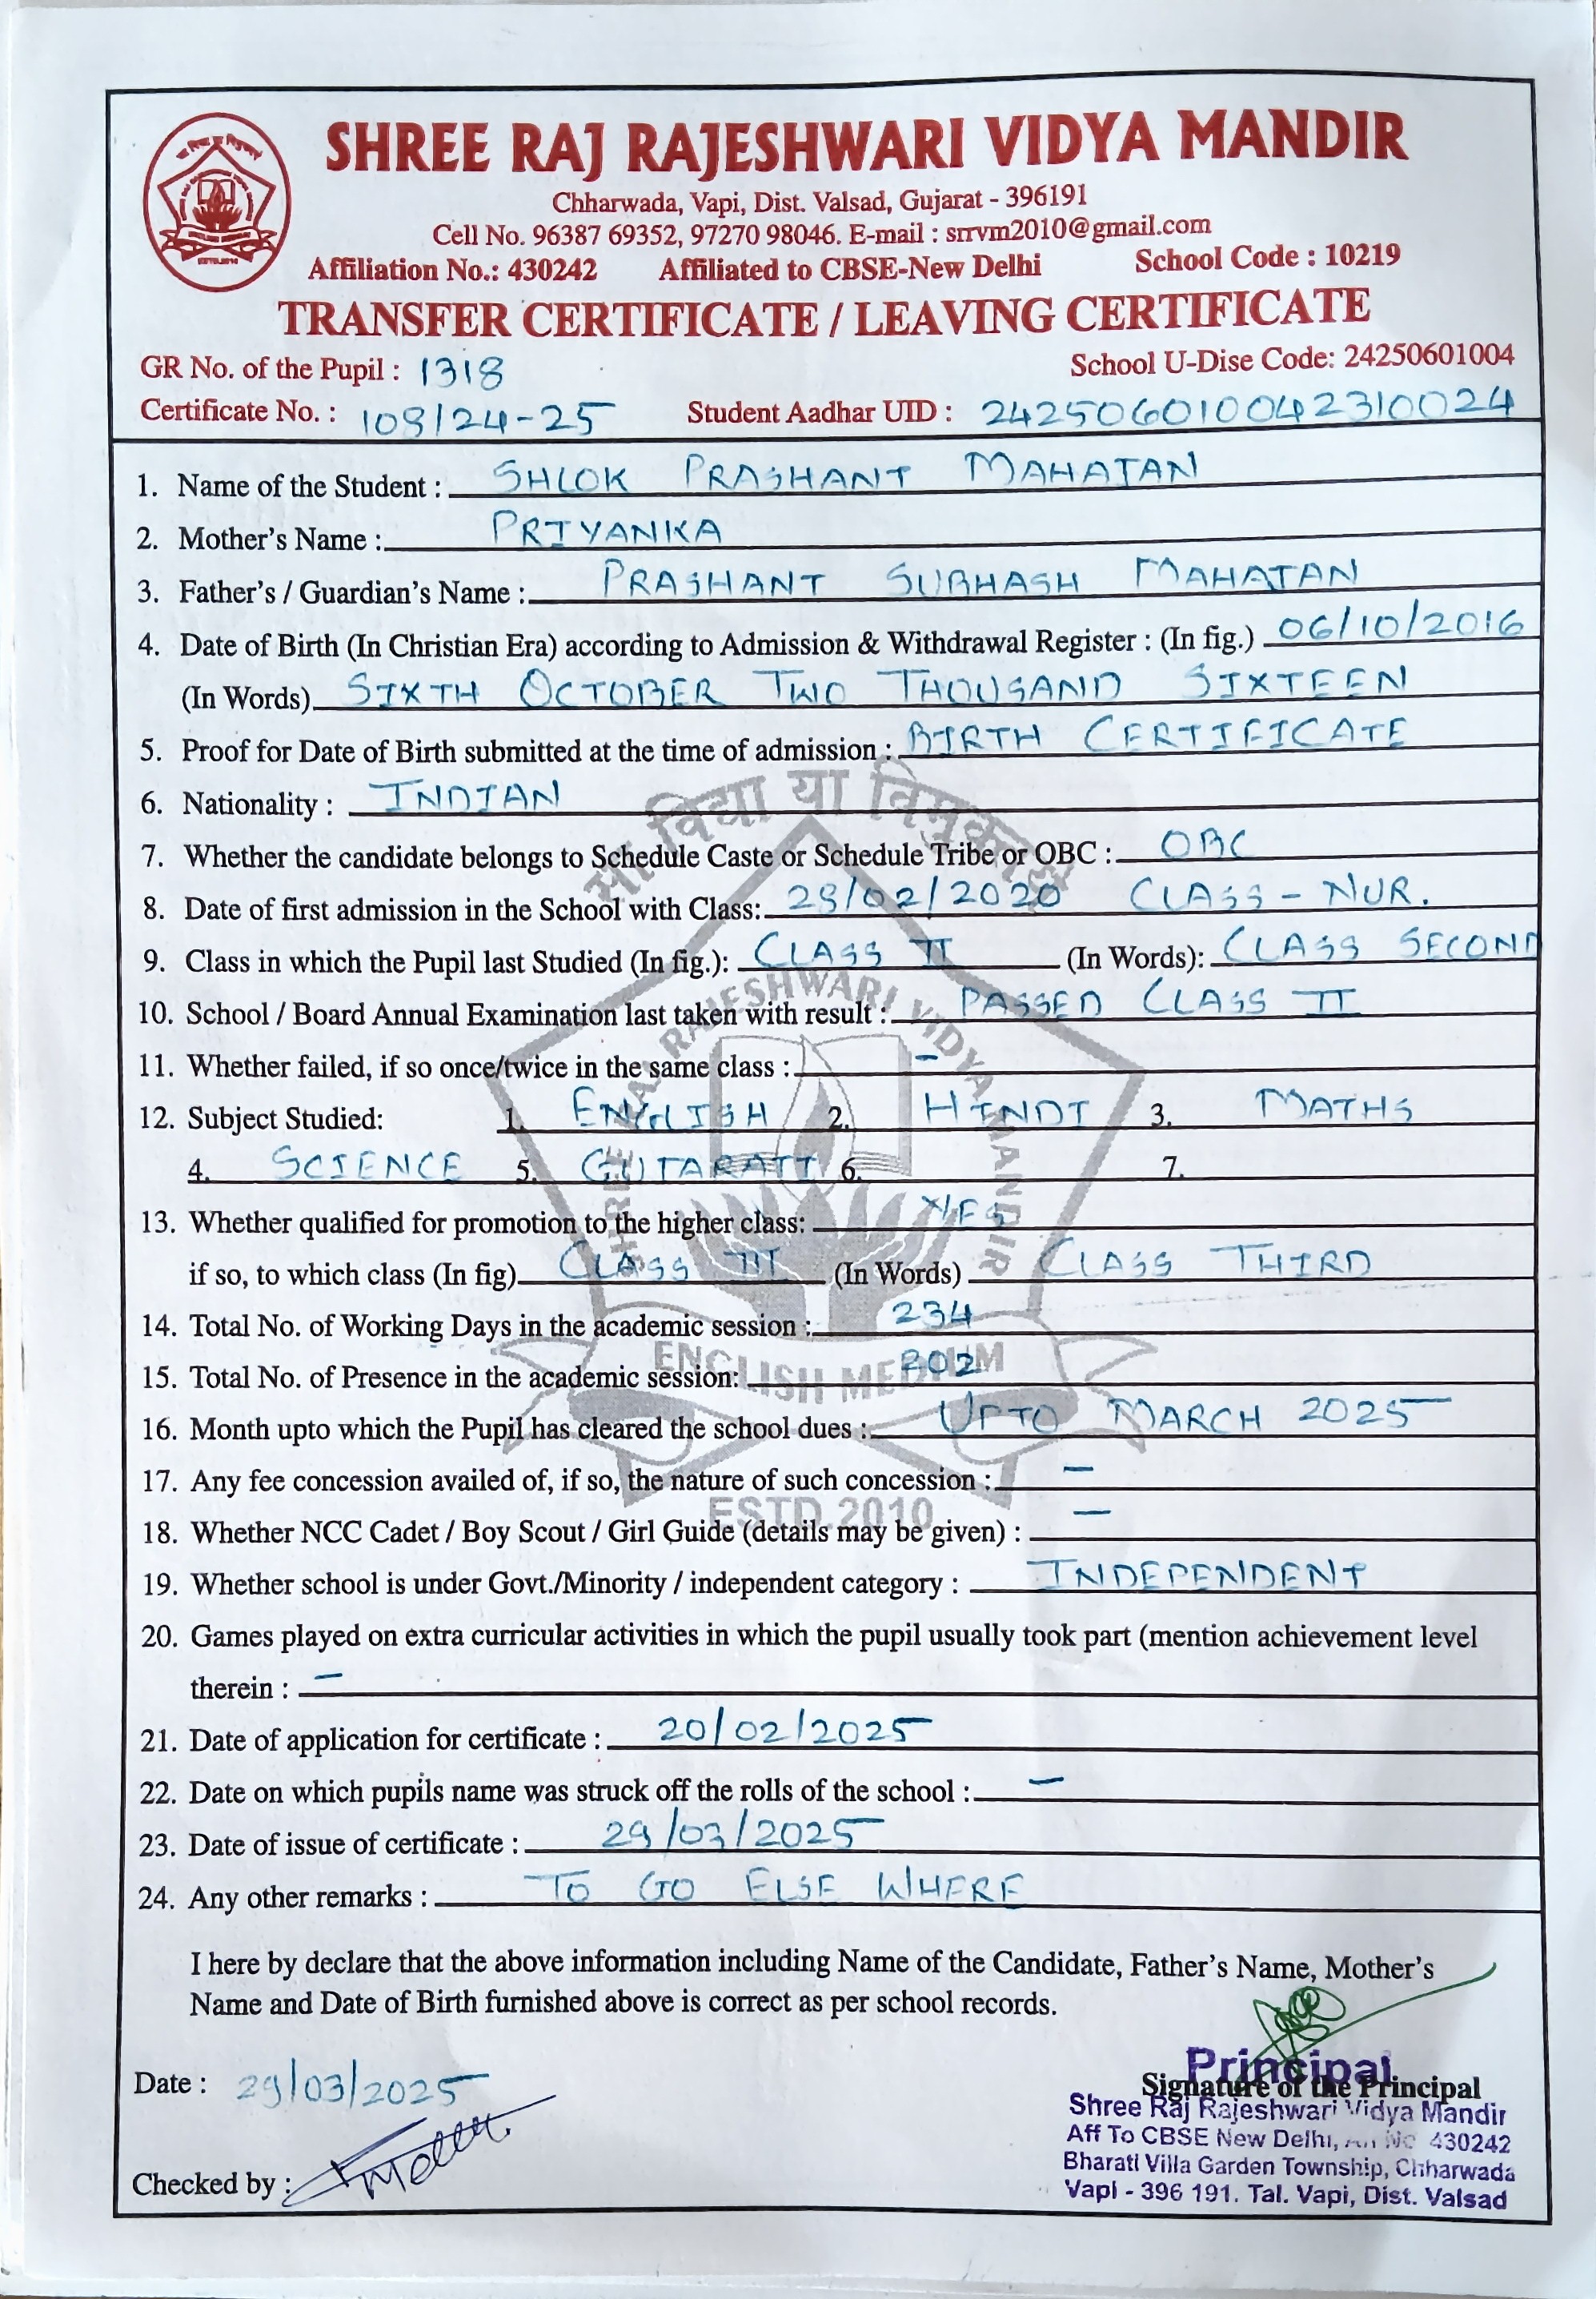 SHREE RAJ RAJESHWARI VIDYA MANDIR
Chharwada, Vapi, Dist. Valsad, Gujarat - 396191
Cell No. 96387 69352, 97270 98046. E-mail : srrvm2010@gmail.com
Affiliation No.: 430242 Affiliated to CBSE-New Delhi School Code : 10219
TRANSFER CERTIFICATE / LEAVING CERTIFICATE
GR No. of the Pupil : 1318 School U-Dise Code: 24250601004
Certificate No. : 108/24-25 Student Aadhar UID : 242506010042310024
1. Name of the Student : SHLOK PRASHANT MAHAJAN
2. Mother's Name : PRIYANKA
3. Father's / Guardian's Name : PRASHANT SUBHASH MAHAJAN
4. Date of Birth (In Christian Era) according to Admission & Withdrawal Register : (In fig.) 06/10/2016
(In Words) SIXTH OCTOBER TWO THOUSAND SIXTEEN
5. Proof for Date of Birth submitted at the time of admission : BIRTH CERTIFICATE
6. Nationality : INDIAN
7. Whether the candidate belongs to Schedule Caste or Schedule Tribe or OBC : OBC
8. Date of first admission in the School with Class: 28/02/2020 CLASS - NUR.
9. Class in which the Pupil last Studied (In fig.): CLASS II (In Words): CLASS SECOND
10. School / Board Annual Examination last taken with result : PASSED CLASS II
11. Whether failed, if so once/twice in the same class : -
12. Subject Studied: 1. ENGLISH 2. HINDI 3. MATHS
4. SCIENCE 5. GUJARATI 6. 7.
13. Whether qualified for promotion to the higher class: YES
if so, to which class (In fig) CLASS III (In Words) CLASS THIRD
14. Total No. of Working Days in the academic session : 234
15. Total No. of Presence in the academic session: 202
16. Month upto which the Pupil has cleared the school dues : UPTO MARCH 2025
17. Any fee concession availed of, if so, the nature of such concession : -
18. Whether NCC Cadet / Boy Scout / Girl Guide (details may be given) : -
19. Whether school is under Govt./Minority / independent category : INDEPENDENT
20. Games played on extra curricular activities in which the pupil usually took part (mention achievement level
therein : -
21. Date of application for certificate : 20/02/2025
22. Date on which pupils name was struck off the rolls of the school : -
23. Date of issue of certificate : 29/03/2025
24. Any other remarks : TO GO ELSE WHERE
सा विद्या या विमुक्तये
SHREE RAJ RAJESHWARI VIDYA MANDIR
ENGLISH MEDIUM
ESTD.2010
I here by declare that the above information including Name of the Candidate, Father's Name, Mother's
Name and Date of Birth furnished above is correct as per school records.
Date : 29/03/2025
Principal
Signature of the Principal
Shree Raj Rajeshwari Vidya Mandir
Aff To CBSE New Delhi, No 430242
Bharati Villa Garden Township, Chharwada
Vapi - 396 191. Tal. Vapi, Dist. Valsad
Checked by :